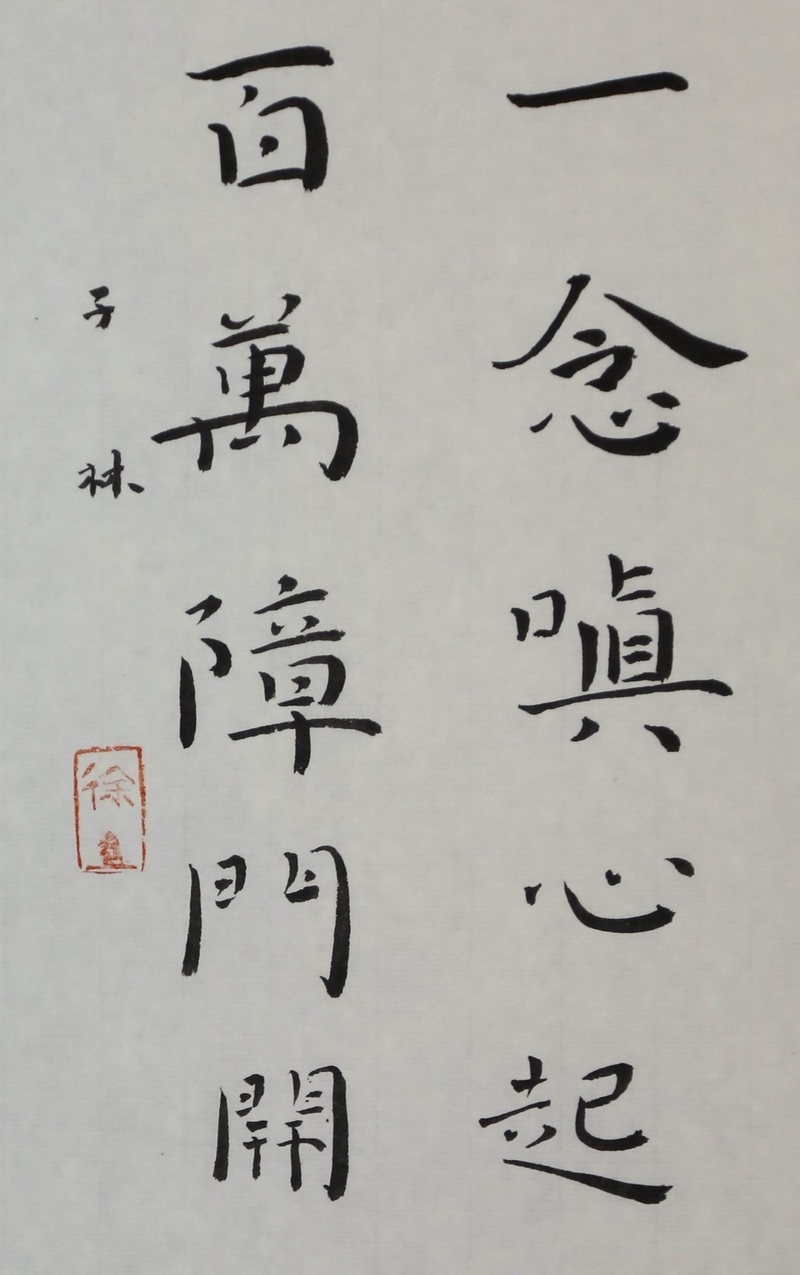 一念嗔心起
百萬障門開
子林
徐